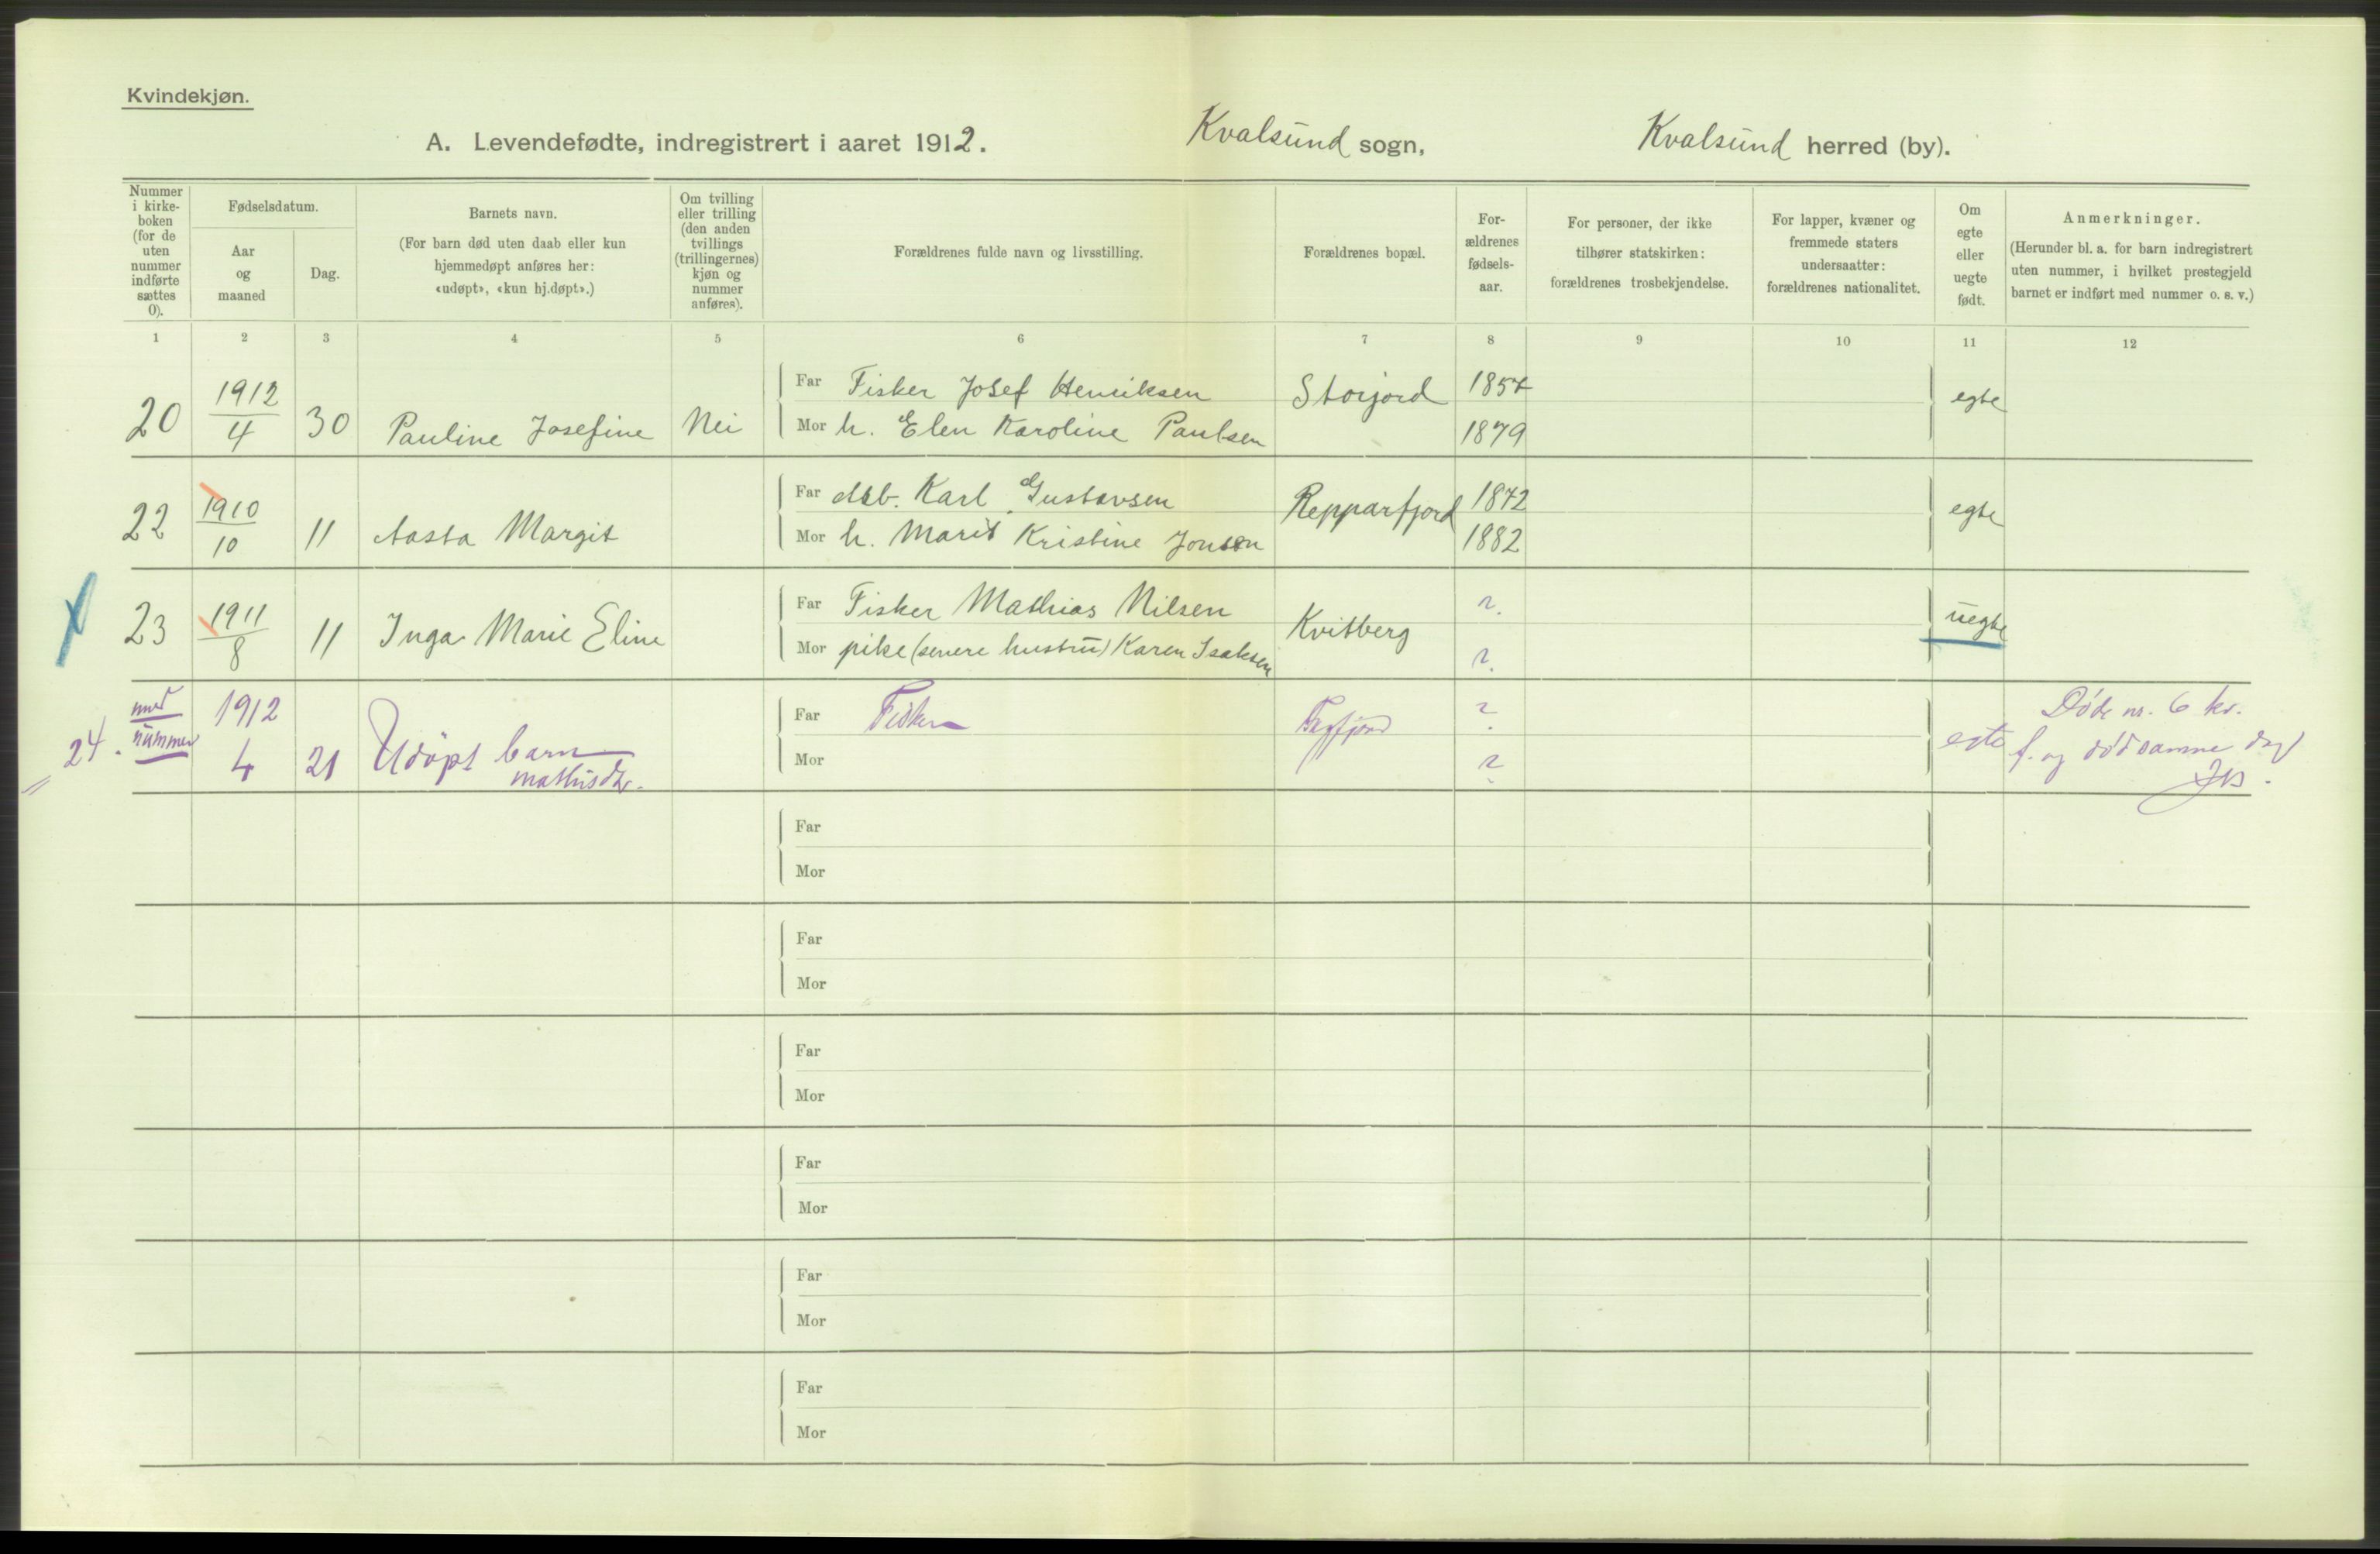 Kvindekjøn.
A. Levendefødte, indregistrert i aaret 1912. Kvalsund sogn, Kvalsund herred (by).
Nummer i kirke-boken (for de uten nummer indførte sættes 0).
Fødselsdatum.
Aar og maaned
Dag.
Barnets navn.
(For barn død uten daab eller kun hjemmedøpt anføres her: «udøpt», «kun hj.døpt».)
Om tvilling eller trilling (den anden tvillings (trillingernes) kjøn og nummer anføres).
Forældrenes fulde navn og livsstilling.
Forældrenes bopæl.
For-ældrenes fødsels-aar.
For personer, der ikke tilhører statskirken: forældrenes trosbekjendelse.
For lapper, kvæner og fremmede staters undersaatter: forældrenes nationalitet.
Om egte eller uegte født.
Anmerkninger.
(Herunder bl. a. for barn indregistrert uten nummer, i hvilket prestegjeld barnet er indført med nummer o. s. v.)
1 2 3 4 5 6 7 8 9 10 11 12
20 1912 4 30 Pauline Josefine Nei Far Fisker Josef Henriksen Storjord 1857 egte
Mor h. Elen Karoline Paulsen 1879
22 1910 10 11 Aasta Margit Far Karl Gustavsen Repparfjord 1872 egte
Mor h. Marit Kristine Jonsen 1882
23 1911 8 11 Inga Marie Eline Far Fisker Mathias Nilsen Kvitberg ? uegte
Mor pike (senere hustru) Karen Isaksen ?
24. nummer 1912 4 21 Udøpt barn Far Fisker ? egte Døde nr. 6 kv.
Mor ? f. og død samme dag
Far
Mor
Far
Mor
Far
Mor
Far
Mor
Far
Mor
Far
Mor